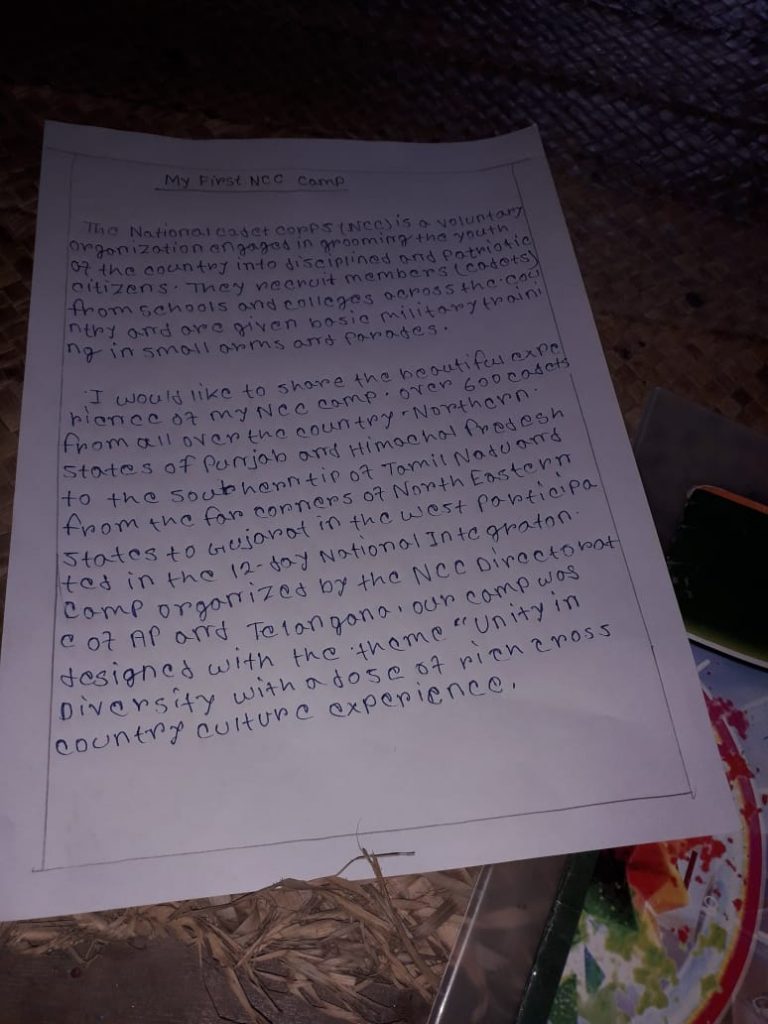 My First NCC Camp
The National cadet Copps (NCC) is a voluntary
organization engaged in grooming the youth
of the country into disciplined and Patriotic
citizens. They recruit members (cadets)
from schools and colleges across the cou
ntry and are given basic military traini
ng in small arms and Parades.
I would like to share the beautiful expe
rience of my NCC camp. over 600 cadets
from all over the country. Northern
states of Punjab and Himachal Predesh
to the Southern tip of Tamil Nadu and
from the far corners of North Eastern
States to Gujarat in the west Participa
ted in the 12-day National Integraton.
Camp organized by the NCC Directorat
e of AP and Telangana, our camp was
designed with the theme "Unity in
Diversity with a dose of rich cross
country culture experience.